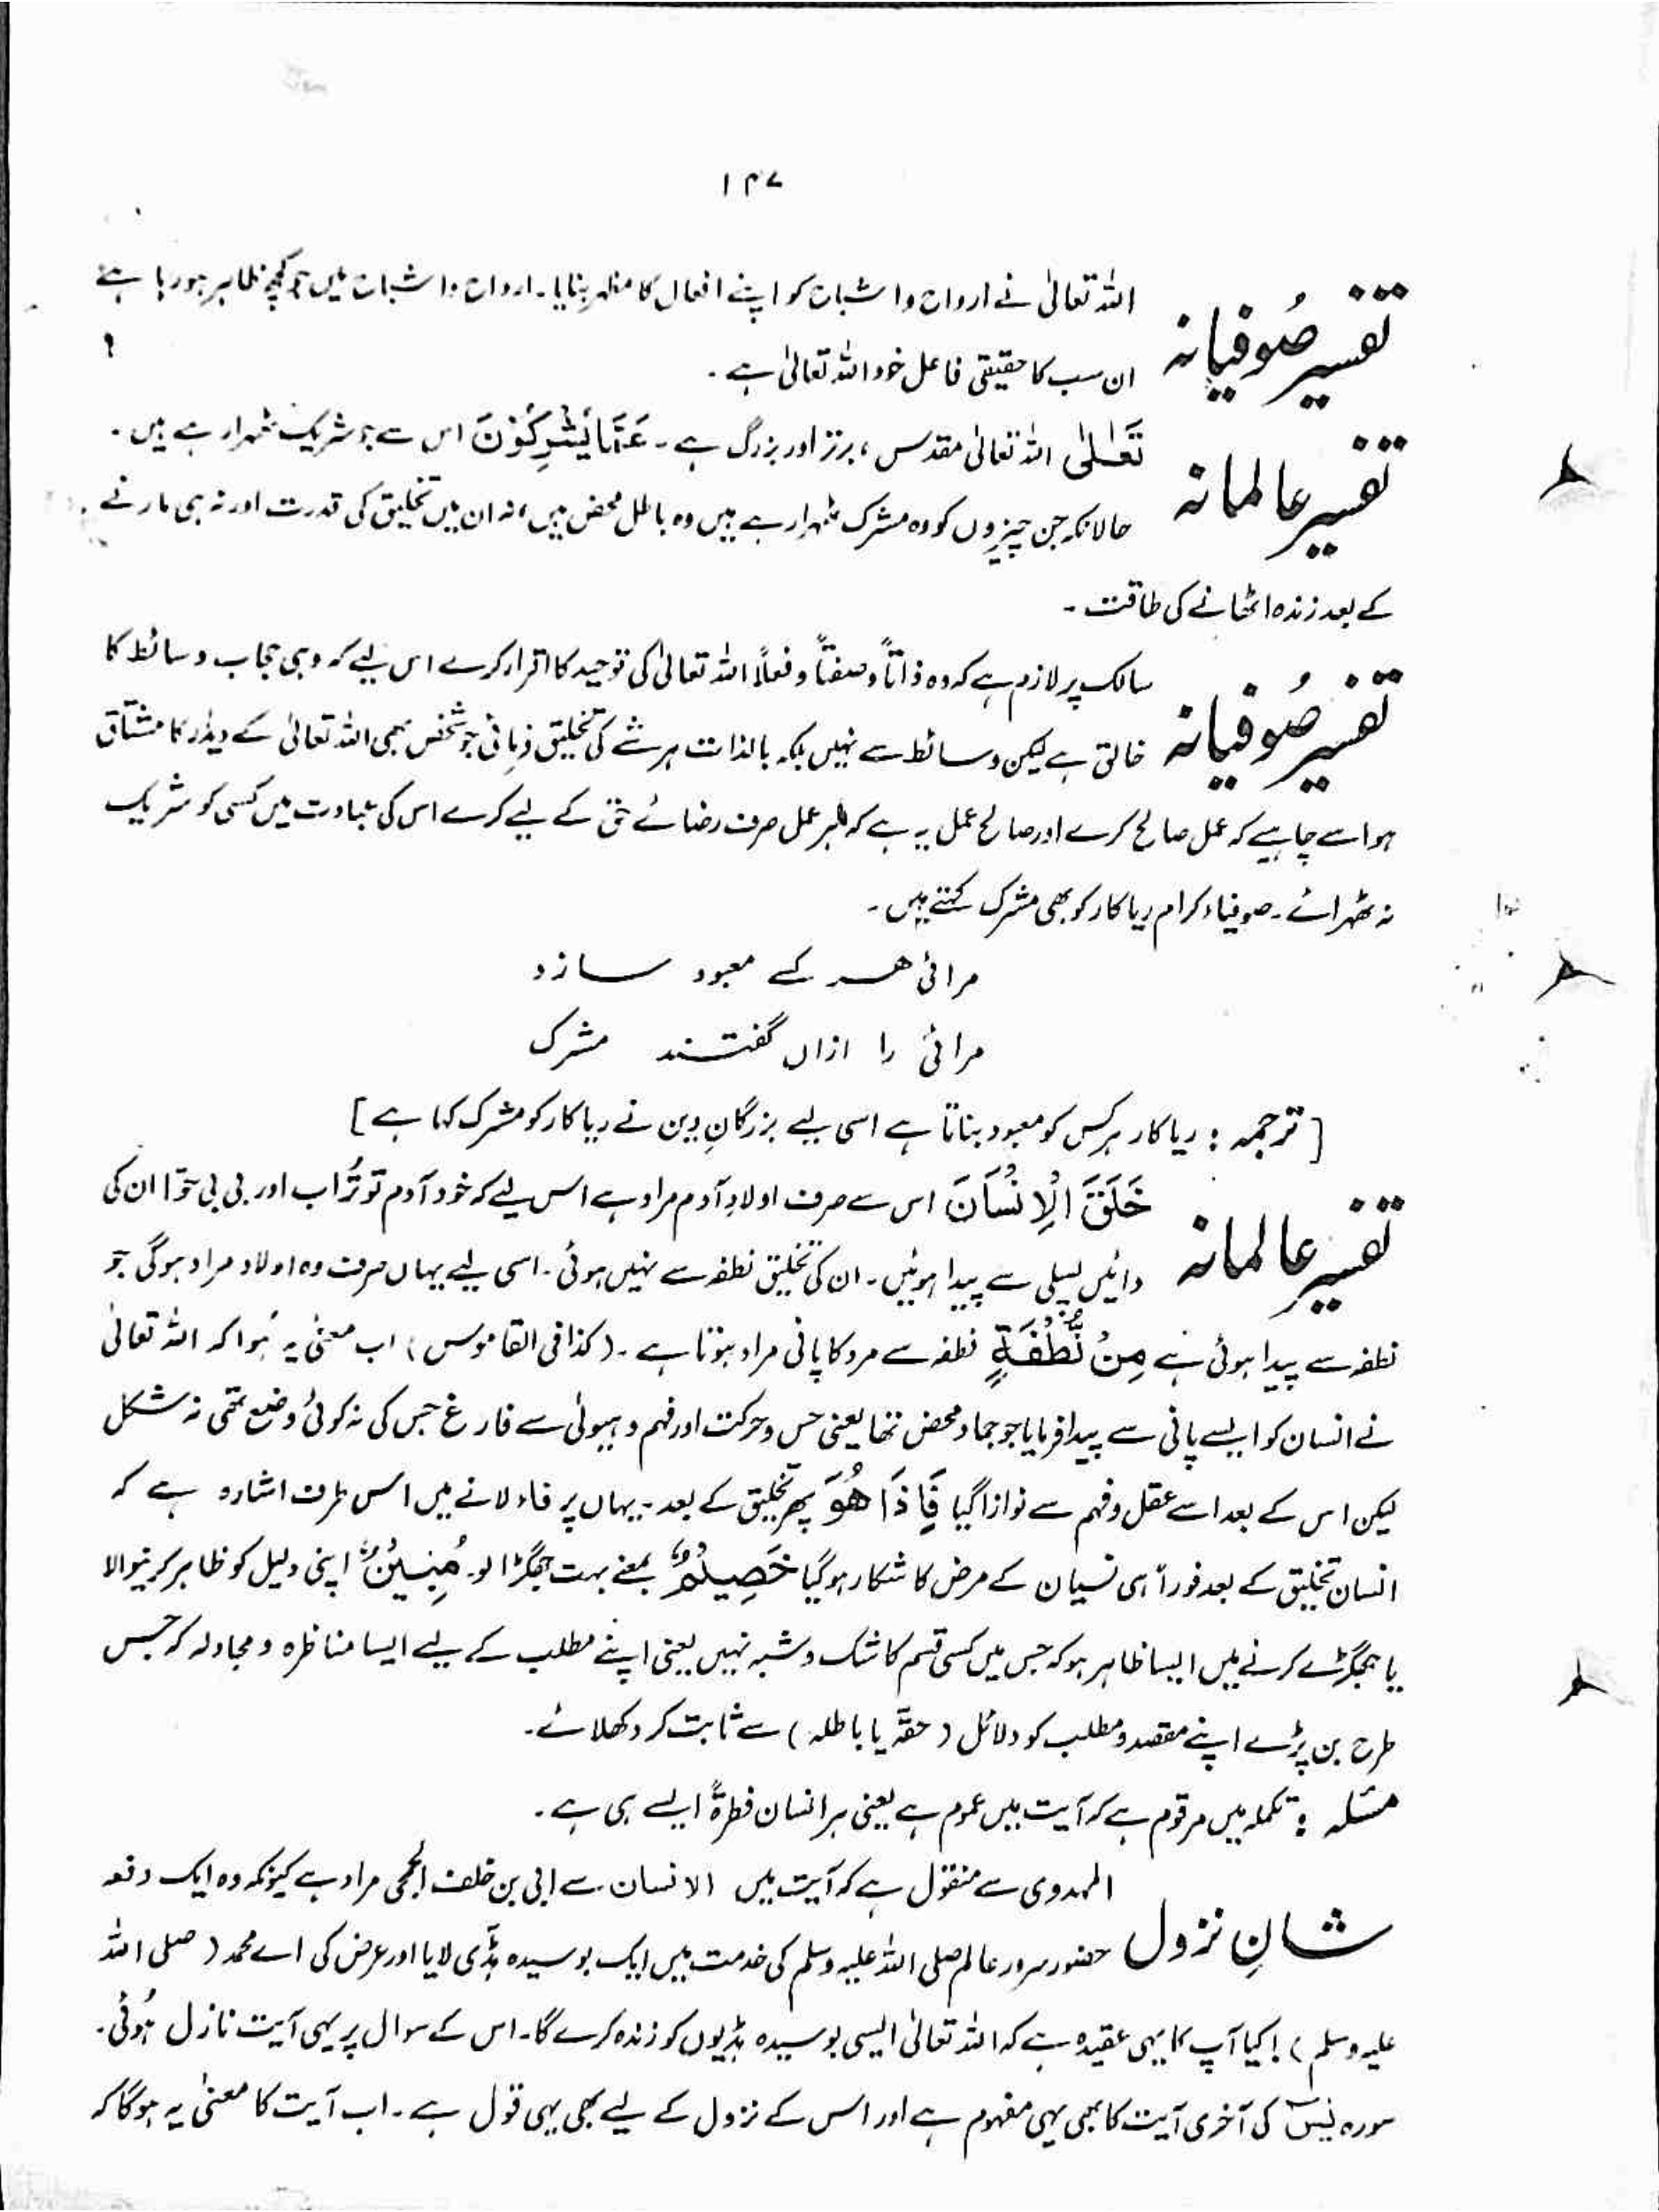 ۱۴۷
تفسیر صُوفیانہ
اللہ تعالیٰ نے ارواح و اشباح کو اپنے افعال کا مظہر بنایا۔ ارواح و اشباح میں جو کچھ ظاہر ہو رہا ہے
ان سب کا حقیقی فاعل خود اللہ تعالیٰ ہے ۔
تفسیر عالمانہ
تَعٰلٰی اللہ تعالیٰ مقدس ، برتر اور بزرگ ہے ۔ عَمَّا یُشْرِکُوْنَ اس سے جو شریک ٹھہرا رہے ہیں ۔
حالانکہ جن چیزوں کو وہ مشرک ٹھہرا رہے ہیں وہ باطل محض ہیں ، نہ ان میں تخلیق کی قدرت اور نہ ہی مارنے
کے بعد زندہ اٹھانے کی طاقت ۔
تفسیر صُوفیانہ
سالک پر لازم ہے کہ وہ ذاتاً و صفتاً و فعلاً اللہ تعالیٰ کی توحید کا اقرار کرے اس لیے کہ وہی حجاب وسائط کا
خالق ہے لیکن وسائط سے نہیں بلکہ بالذات ہر شے کی تخلیق فرمائی جو شخص بھی اللہ تعالیٰ کے دیدار کا مشتاق
ہو اسے چاہیے کہ عمل صالح کرے اور صالح عمل یہ ہے کہ ہر عمل صرف رضائے حق کے لیے کرے اس کی عبادت میں کسی کو شریک
نہ ٹھہرائے ۔ صوفیاء کرام ریا کار کو بھی مشرک کہتے ہیں ۔
مرائی ھر کسے معبود سازد
مرائی را ازاں گفتند مشرک
[ ترجمہ : ریا کار ہر کس کو معبود بناتا ہے اسی لیے بزرگانِ دین نے ریا کار کو مشرک کہا ہے ]
تفسیر عالمانہ
خَلَقَ الْاِنْسَانَ اس سے صرف اولادِ آدم مراد ہے اس لیے کہ خود آدم تو تُراب اور بی بی حوّا ان کی
دائیں پسلی سے پیدا ہوئیں ۔ ان کی تخلیق نطفہ سے نہیں ہوئی ۔ اسی لیے یہاں صرف وہ اولاد مراد ہوگی جو
نطفہ سے پیدا ہوئی ہے مِنْ نُّطْفَةٍ نطفہ سے مرد کا پانی مراد ہوتا ہے ۔ ( کذا فی القاموس ) اب معنیٰ یہ ہُوا کہ اللہ تعالیٰ
نے انسان کو ایسے پانی سے پیدا فرمایا جو جماد محض تھا یعنی حس و حرکت اور فہم و ہیولیٰ سے فارغ جس کی نہ کوئی وضع تھی نہ شکل
لیکن اس کے بعد اسے عقل و فہم سے نوازا گیا فَاِذَا ھُوَ پھر تخلیق کے بعد ۔ یہاں پر فاء لانے میں اس طرف اشارہ ہے کہ
انسان تخلیق کے بعد فوراً ہی نسیان کے مرض کا شکار ہو گیا خَصِیْمٌ بمعنے بہت جھگڑالو ۔ مُّبِیْنٌ اپنی دلیل کو ظاہر کرنیوالا
یا جھگڑے کرنے میں ایسا ظاہر ہو کہ جس میں کسی قسم کا شک و شبہ نہیں یعنی اپنے مطلب کے لیے ایسا مناظرہ و مجادلہ کہ جس
طرح بن پڑے اپنے مقصد و مطلب کو دلائل ( حقّہ یا باطلہ ) سے ثابت کر دکھلائے ۔
مسئلہ : تکملہ میں مرقوم ہے کہ آیت میں عموم ہے یعنی ہر انسان فطرةً ایسے ہی ہے ۔
شانِ نزول
المہدوی سے منقول ہے کہ آیت میں الانسان سے ابی بن خلف الجمحی مراد ہے کیونکہ وہ ایک دفعہ
حضور سرور عالم صلی اللہ علیہ وسلم کی خدمت میں ایک بوسیدہ ہڈّی لایا اور عرض کی اے محمد ( صلی اللہ
علیہ وسلم ) ! کیا آپ کا یہی عقیدہ ہے کہ اللہ تعالیٰ ایسی بوسیدہ ہڈیوں کو زندہ کرے گا ۔ اس کے سوال پر یہی آیت نازل ہُوئی ۔
سورہ یٰسٓ کی آخری آیت کا بھی یہی مفہوم ہے اور اس کے نزول کے لیے بھی یہی قول ہے ۔ اب آیت کا معنیٰ یہ ہوگا کہ